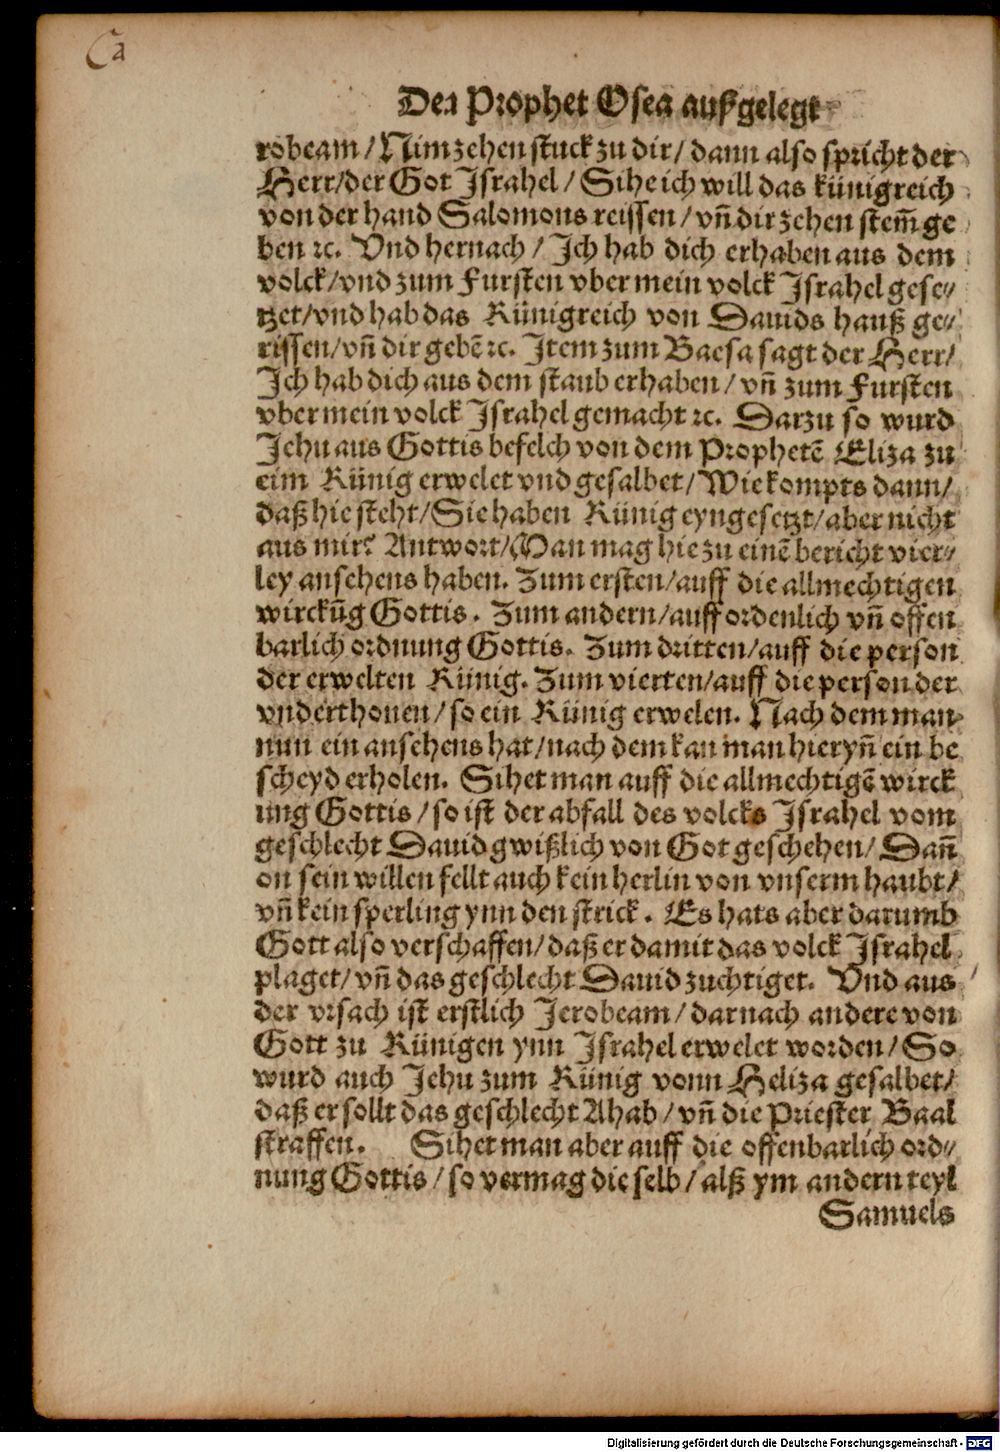 Ca
Der Prophet Osea außgelegt
robeam / Nim zehen stuck zu dir / dann also spricht der
Herr / der Got Israhel / Sihe ich will das künigreich
von der hand Salomons reissen / vn̄ dir zehen stem̄ ge
ben ꝛc. Vnd hernach / Ich hab dich erhaben aus dem
volck / vnd zum Fursten vber mein volck Israhel gese⸗
tzet / vnd hab das Künigreich von Dauids hauß ge⸗
rissen / vn̄ dir gebē ꝛc. Item zum Baesa sagt der Herr /
Ich hab dich aus dem staub erhaben / vn̄ zum Fursten
vber mein volck Israhel gemacht ꝛc. Darzu so wurd
Jehu aus Gottis befelch von dem Prophetē Eliza zu
eim Künig erwelet vnd gesalbet / Wie kompts dann /
daß hie steht / Sie haben Künig eyngesetzt / aber nicht
aus mir? Antwort / Man mag hie zu einē bericht vier⸗
ley ansehens haben. Zum ersten / auff die allmechtigen
wirckūg Gottis. Zum andern / auff ordenlich vn̄ offen
barlich ordnung Gottis. Zum dritten / auff die person
der erwelten Künig. Zum vierten / auff die person der
vnderthonen / so ein Künig erwelen. Nach dem man
nun ein ansehens hat / nach dem kan man hieryn̄ ein be
scheyd erholen. Sihet man auff die allmechtigē wirck
ung Gottis / so ist der abfall des volcks Israhel vom
geschlecht Dauid gwißlich von Got geschehen / Dan̄
on sein willen fellt auch kein herlin von vnserm haubt /
vn̄ kein sperling ynn den strick. Es hats aber darumb
Gott also verschaffen / daß er damit das volck Israhel
plaget / vn̄ das geschlecht Dauid zuchtiget. Vnd aus
der vrsach ist erstlich Jerobeam / darnach andere von
Gott zu Künigen ynn Israhel erwelet worden / So
wurd auch Jehu zum Künig vonn Heliza gesalbet /
daß er sollt das geschlecht Ahab / vn̄ die Priester Baal
straffen. Sihet man aber auff die offenbarlich ord⸗
nung Gottis / so vermag die selb / alß ym andern teyl
Samuels
Digitalisierung gefördert durch die Deutsche Forschungsgemeinschaft - DFG